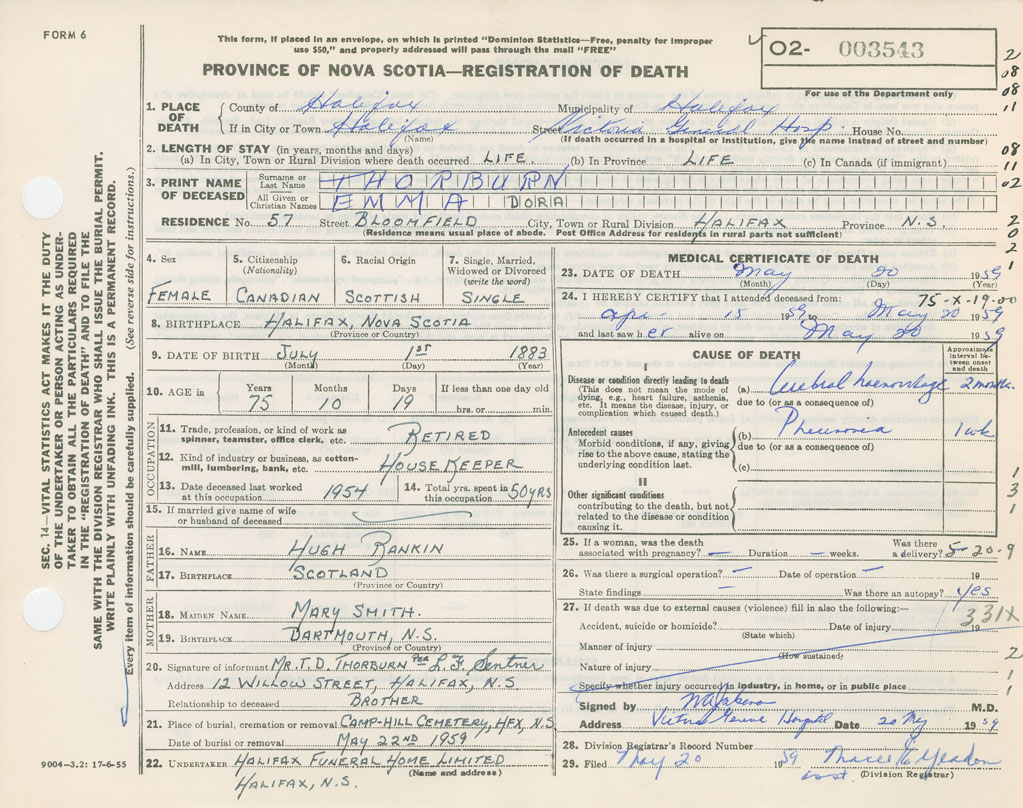 FORM 6
This form, if placed in an envelope, on which is printed "Dominion Statistics—Free, penalty for improper
use $50," and properly addressed will pass through the mail "FREE"
PROVINCE OF NOVA SCOTIA—REGISTRATION OF DEATH
O2- 003543
For use of the Department only
2
08
08
11
08
11
02
2
02
2
1
1. PLACE OF DEATH
County of Halifax Municipality of Halifax
If in City or Town Halifax Street Victoria General Hosp. House No.
(Name) (If death occurred in a hospital or institution, give the name instead of street and number)
2. LENGTH OF STAY (in years, months and days)
(a) In City, Town or Rural Division where death occurred LIFE (b) In Province LIFE (c) In Canada (if immigrant)
3. PRINT NAME OF DECEASED
Surname or Last Name THORBURN
All Given or Christian Names EMMA DORA
RESIDENCE No. 57 Street BLOOMFIELD City, Town or Rural Division HALIFAX Province N.S.
(Residence means usual place of abode. Post Office Address for residents in rural parts not sufficient)
4. Sex FEMALE
5. Citizenship (Nationality) CANADIAN
6. Racial Origin SCOTTISH
7. Single, Married, Widowed or Divorced (write the word) SINGLE
8. BIRTHPLACE HALIFAX, NOVA SCOTIA
(Province or Country)
9. DATE OF BIRTH JULY 1ST 1883
(Month) (Day) (Year)
10. AGE in Years 75 Months 10 Days 19 If less than one day old hrs. or min.
OCCUPATION
11. Trade, profession, or kind of work as spinner, teamster, office clerk, etc. RETIRED
12. Kind of industry or business, as cotton-mill, lumbering, bank, etc. HOUSE KEEPER
13. Date deceased last worked at this occupation 1954
14. Total yrs. spent in this occupation 50 YRS
15. If married give name of wife or husband of deceased
FATHER
16. NAME HUGH RANKIN
17. BIRTHPLACE SCOTLAND
(Province or Country)
MOTHER
18. MAIDEN NAME MARY SMITH.
19. BIRTHPLACE DARTMOUTH, N.S.
(Province or Country)
20. Signature of informant MR. T. D. THORBURN PER L. F. Sentner
Address 12 WILLOW STREET, HALIFAX, N.S
Relationship to deceased BROTHER
21. Place of burial, cremation or removal CAMP-HILL CEMETERY, HFX, N.S.
Date of burial or removal MAY 22ND 1959
22. UNDERTAKER HALIFAX FUNERAL HOME LIMITED
(Name and address)
HALIFAX, N.S.
9004—3.2: 17-6-55
MEDICAL CERTIFICATE OF DEATH
23. DATE OF DEATH May 20 1959
(Month) (Day) (Year)
24. I HEREBY CERTIFY that I attended deceased from: 75-X-19-00
Apr. 15 1959 to May 20 1959
and last saw her alive on May 20 1959
CAUSE OF DEATH
Approximate interval between onset and death
I
Disease or condition directly leading to death
(This does not mean the mode of dying, e.g., heart failure, asthenia, etc. It means the disease, injury, or complication which caused death.)
(a) Cerebral haemorrhage 2 months.
due to (or as a consequence of)
Antecedent causes
Morbid conditions, if any, giving rise to the above cause, stating the underlying condition last.
(b) Pneumonia 1 wk
due to (or as a consequence of)
(c)
II
Other significant conditions contributing to the death, but not related to the disease or condition causing it.
1
3
1
25. If a woman, was the death associated with pregnancy? — Duration — weeks. Was there a delivery? 5-20-9
26. Was there a surgical operation? — Date of operation — 19
State findings — Was there an autopsy? yes
27. If death was due to external causes (violence) fill in also the following:—
331X
Accident, suicide or homicide? Date of injury 19
(State which)
Manner of injury
(How sustained)
Nature of injury
Specify whether injury occurred in industry, in home, or in public place
2
1
1
Signed by M.D.
Address Victoria General Hospital Date 20 May 1959
28. Division Registrar's Record Number
29. Filed May 20 1959
asst. (Division Registrar)
SEC. 14—VITAL STATISTICS ACT MAKES IT THE DUTY
OF THE UNDERTAKER OR PERSON ACTING AS UNDER-
TAKER TO OBTAIN ALL THE PARTICULARS REQUIRED
IN THE "REGISTRATION OF DEATH" AND TO FILE THE
SAME WITH THE DIVISION REGISTRAR WHO SHALL ISSUE THE BURIAL PERMIT.
WRITE PLAINLY WITH UNFADING INK. THIS IS A PERMANENT RECORD.
Every item of information should be carefully supplied. (See reverse side for instructions.)